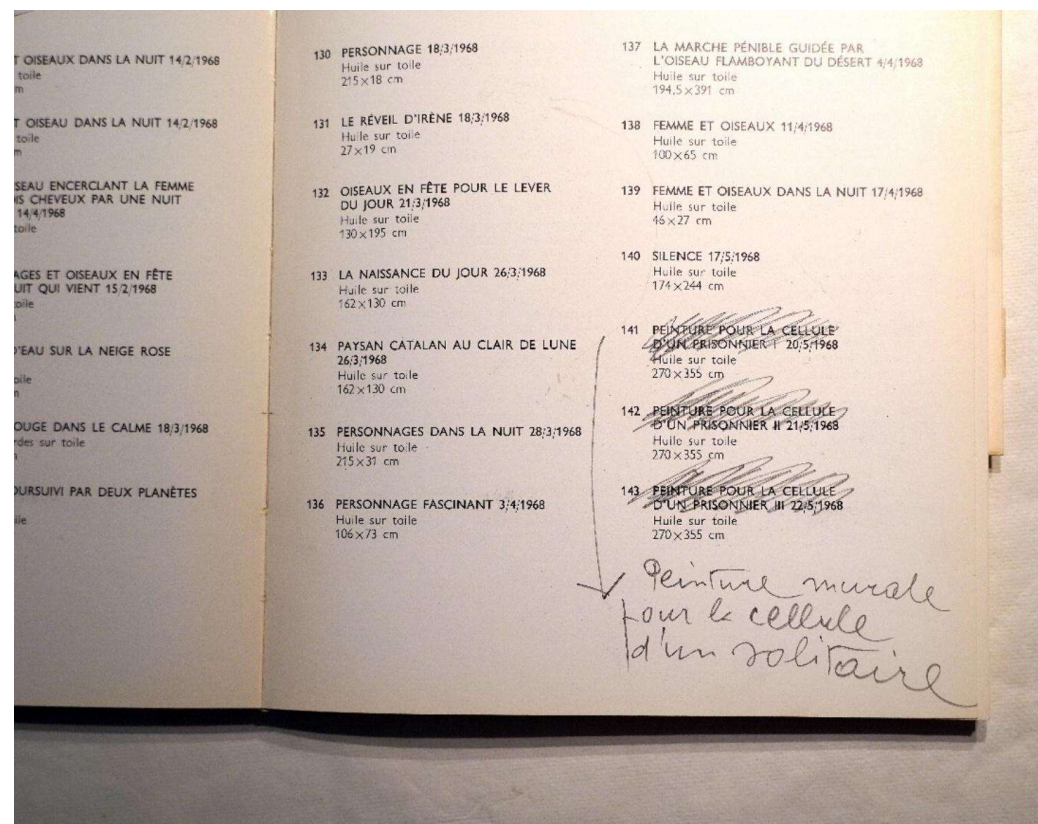 T OISEAUX DANS LA NUIT 14/2/1968
toile
m
T OISEAU DANS LA NUIT 14/2/1968
toile
m
SEAU ENCERCLANT LA FEMME
IS CHEVEUX PAR UNE NUIT
14/4/1968
toile
AGES ET OISEAUX EN FÊTE
UIT QUI VIENT 15/2/1968
toile
D'EAU SUR LA NEIGE ROSE
oile
OUGE DANS LE CALME 18/3/1968
rdes sur toile
OURSUIVI PAR DEUX PLANÈTES
ile
130 PERSONNAGE 18/3/1968
Huile sur toile
215×18 cm
131 LE RÉVEIL D'IRÈNE 18/3/1968
Huile sur toile
27×19 cm
132 OISEAUX EN FÊTE POUR LE LEVER
DU JOUR 21/3/1968
Huile sur toile
130×195 cm
133 LA NAISSANCE DU JOUR 26/3/1968
Huile sur toile
162×130 cm
134 PAYSAN CATALAN AU CLAIR DE LUNE
26/3/1968
Huile sur toile
162×130 cm
135 PERSONNAGES DANS LA NUIT 28/3/1968
Huile sur toile
215×31 cm
136 PERSONNAGE FASCINANT 3/4/1968
Huile sur toile
106×73 cm
137 LA MARCHE PÉNIBLE GUIDÉE PAR
L'OISEAU FLAMBOYANT DU DÉSERT 4/4/1968
Huile sur toile
194,5×391 cm
138 FEMME ET OISEAUX 11/4/1968
Huile sur toile
100×65 cm
139 FEMME ET OISEAUX DANS LA NUIT 17/4/1968
Huile sur toile
46×27 cm
140 SILENCE 17/5/1968
Huile sur toile
174×244 cm
141 PEINTURE POUR LA CELLULE
D'UN PRISONNIER I 20/5/1968
Huile sur toile
270×355 cm
142 PEINTURE POUR LA CELLULE
D'UN PRISONNIER II 21/5/1968
Huile sur toile
270×355 cm
143 PEINTURE POUR LA CELLULE
D'UN PRISONNIER III 22/5/1968
Huile sur toile
270×355 cm
Peinture murale
pour la cellule
d'un solitaire